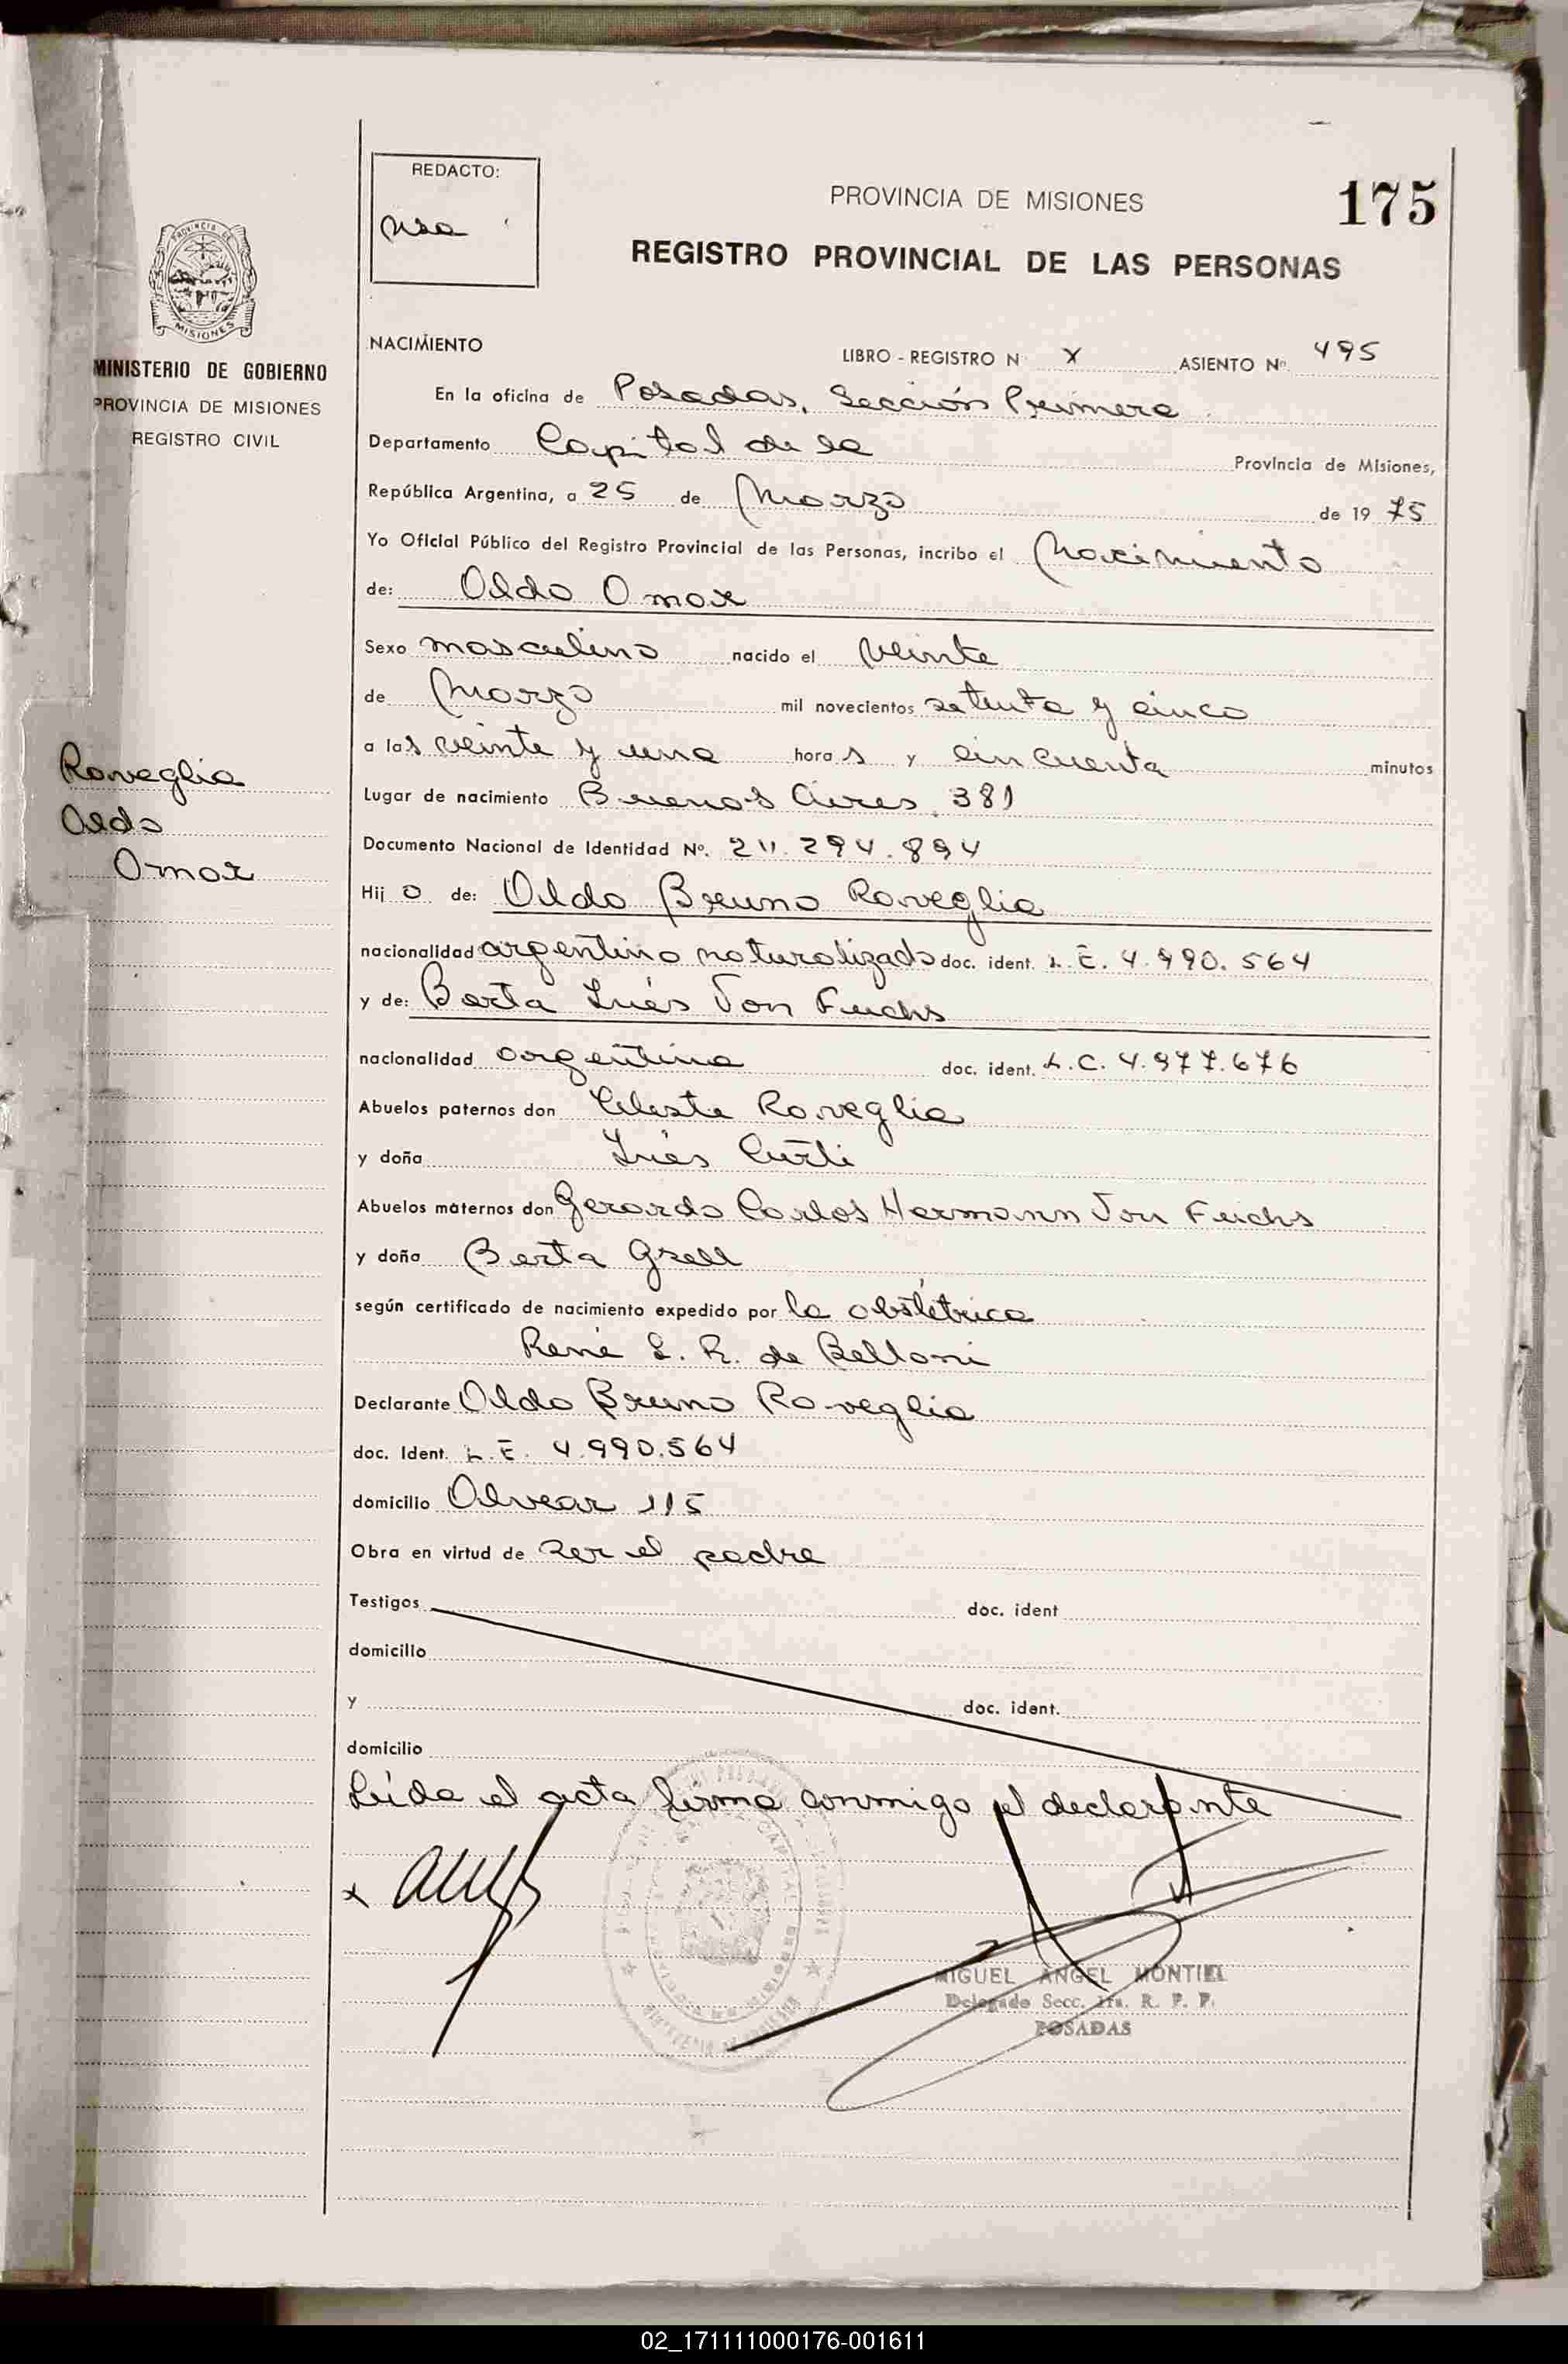 REDACTO:
PROVINCIA DE MISIONES
175
REGISTRO PROVINCIAL DE LAS PERSONAS
MISIONES
MINISTERIO DE GOBIERNO
PROVINCIA DE MISIONES
REGISTRO CIVIL
NACIMIENTO LIBRO - REGISTRO N X ASIENTO Nº. 495
En la oficina de Posadas, Sección Primera
Departamento Capital de la Provincia de Misiones,
República Argentina, a 25 de Marzo de 19 75
Yo Oficial Público del Registro Provincial de las Personas, incribo el Nacimiento
de: Aldo Omar
Sexo masculino nacido el veinte
de Marzo mil novecientos setenta y cinco
a las veinte y una horas y cincuenta minutos
Lugar de nacimiento Buenos Aires 381
Documento Nacional de Identidad Nº. 24.294.894
Hijo de: Aldo Bruno Roveglia
nacionalidad argentino naturalizado doc. ident. L.E. 4.990.564
y de: Berta Inés Von Fuchs
nacionalidad argentina doc. ident. L.C. 4.977.676
Abuelos paternos don Celeste Roveglia
y doña Inés Curti
Abuelos maternos don Gerardo Carlos Hermann Von Fuchs
y doña Berta Grell
según certificado de nacimiento expedido por la obstétrica
René L. R. de Belloni
Declarante Aldo Bruno Roveglia
doc. Ident. L.E. 4.990.564
domicilio Alvear 115
Obra en virtud de ser el padre
Testigos doc. ident
domicilio
y doc. ident.
domicilio
Leída el acta firma conmigo el declarante
MIGUEL ANGEL MONTIEL
Delegado Secc. 1ra. R. P. P.
POSADAS
Roveglia
Aldo
Omar
02_171111000176-001611